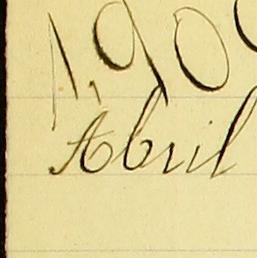 1,90
Abril